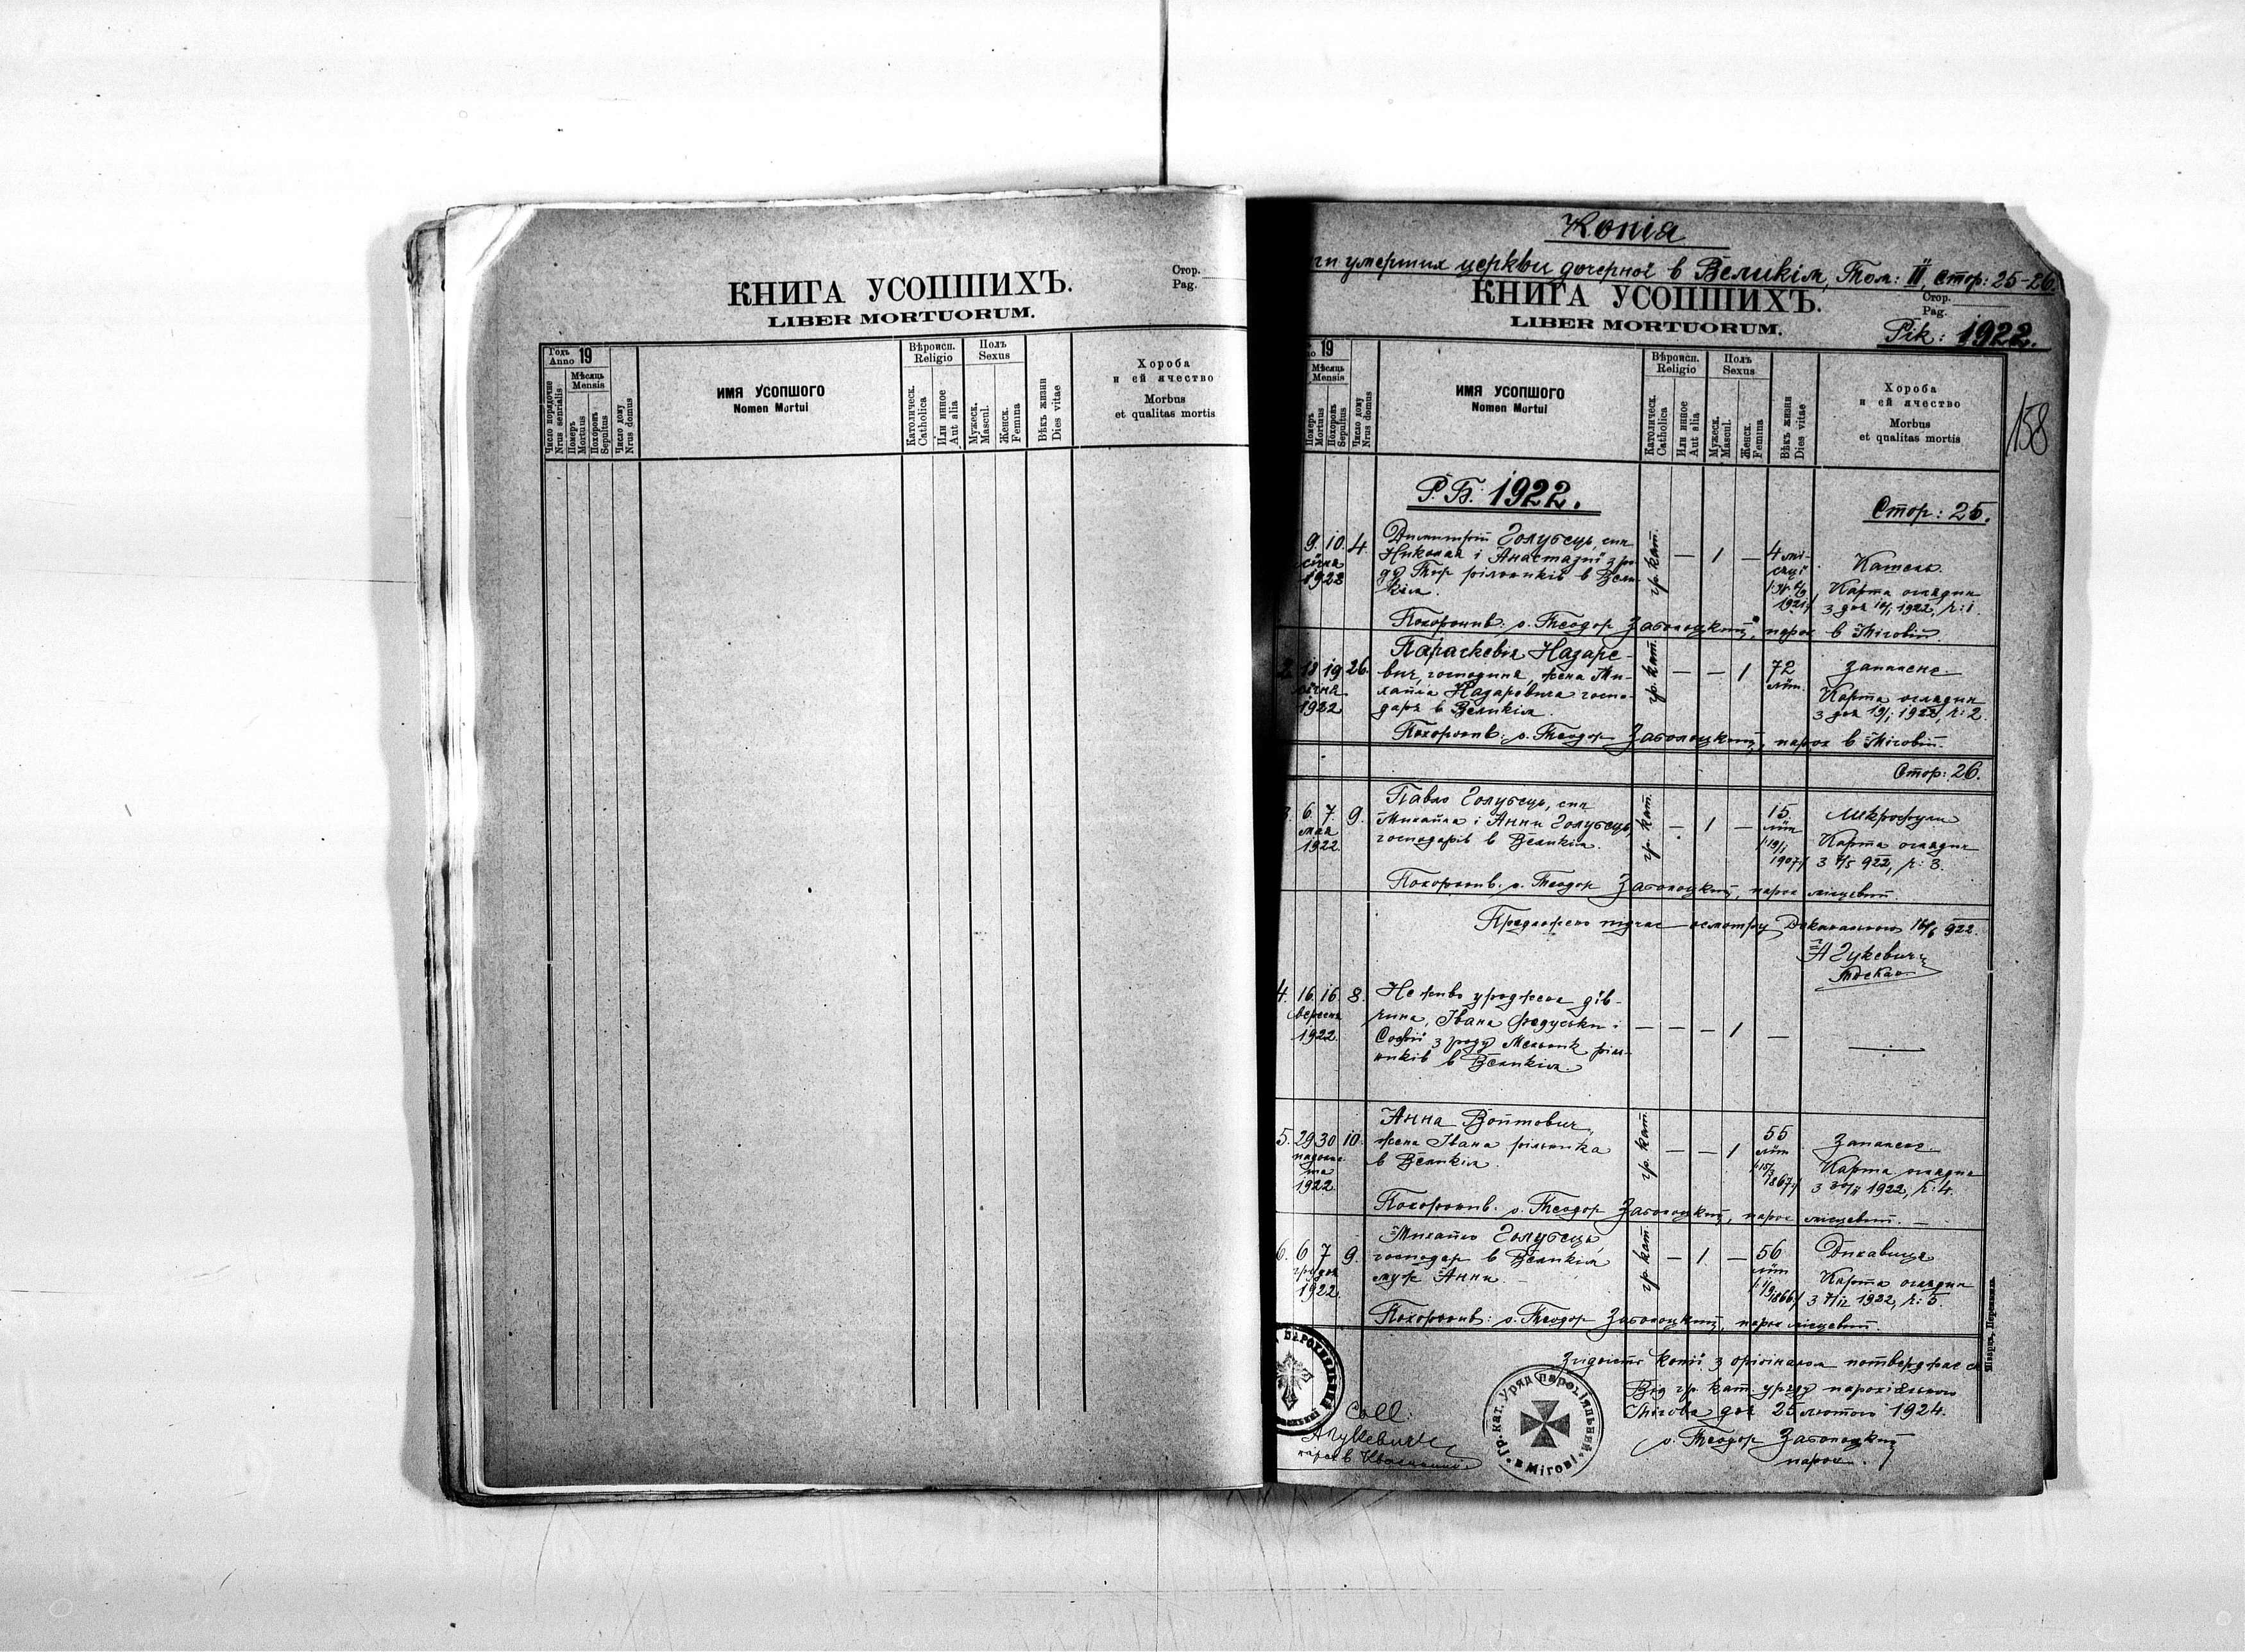 Стор.
Pag.
КНИГА УСОПШИХЪ.
LIBER MORTUORUM.
Годъ 19
Anno
Мѣсяць
Mensis
Число порядочне
Nrus serialis
Померъ
Mortuus
Похоронъ
Sepultus
Число дому
Nrus domus
ИМЯ УСОПШОГО
Nomen Mortui
Вѣроисп.
Religio
Католическ.
Catholica
Или инное
Aut alia
Полъ
Sexus
Мужеск.
Mascul.
Женск.
Femina
Вѣкъ жизни
Dies vitae
Хороба
и ей ячество
Morbus
et qualitas mortis
Копія
умерших церкви дочерної в Великім, Том: II, Стор: 25-26.
КНИГА УСОПШИХЪ.
Стор.
Pag.
LIBER MORTUORUM.
Рік: 1922.
19
Мѣсяць
Mensis
Померъ
Mortuus
Похоронъ
Sepultus
Число дому
Nrus domus
ИМЯ УСОПШОГО
Nomen Mortui
Вѣроисп.
Religio
Католическ.
Catholica
Или инное
Aut alia
Полъ
Sexus
Мужеск.
Mascul.
Женск.
Femina
Вѣкъ жизни
Dies vitae
Хороба
и ей ячество
Morbus
et qualitas mortis
158
Р.Б. 1922.
Стор: 25.
9. 10. 4. Димитрій Голубець, син гр. кат. — 1 — 4 мі-
січня Николая і Анастазиї з ро-
1922 ду рільників в Вели- Кашель
кім. 1921 Карта оглядин
з дня 10/I 1922, ч: 1.
Похоронив: о. Теодор Заболоцкий, парох в Міговій.
2. 18 19 26. Параскевія Назаре- гр. кат. — — 1 72 Запаленє
січня вич, господиня, жена Ми- літ.
1922 хайла Назаревича госпо- Карта оглядин
даря в Великім. з дня 19/I 1922, ч: 2.
Похоронив: о. Теодор Заболоцкий, парох в Міговій.
Стор: 26.
3. 6. 7. 9. Павло Голубець, син гр. кат. — 1 — 15
мая Михайла і Анни Голубець, літ
1922. господарів в Великім. 1907 Карта оглядин
з 7/5 922, ч: 3.
Похоронив: о. Теодор Заболоцкий, парох місцевий.
Предложено підчас осмотру Деканального 922.
4. 16. 16. 8. Не живо уроджена дів-
вересня чина, Івана Федуськи і — — — 1 —
1922. Софії з роду Мельник, ріль-
ників в Великім.
5. 29 30 10. Анна Войтович, гр. кат. — — 1 55 Запаленє
падолис- жена Івана рільника літ
та в Великім. 1867 Карта оглядин
1922. з 30/11 1922, ч: 4.
Похоронив: о. Теодор Заболоцкий, парох місцевий. —
6. 6 7 9. Михайло Голубець гр. кат. — 1 — 56 Дихавиця
грудня господар в Великім літ
1922. муж Анни. — 1866 Карта оглядин
з 7/12 1922, ч: 5.
Похоронив: о. Теодор Заболоцкий, парох місцевий.
Згідність копії з оріґіналом потверджає ся
Від гр. кат. уряду парохіяльного
Мігова дня 25 лютого 1924.
о. Теодор Заболоцкий
парох.
Coll:
Гр. кат. Уряд парохіяльний в Мігові